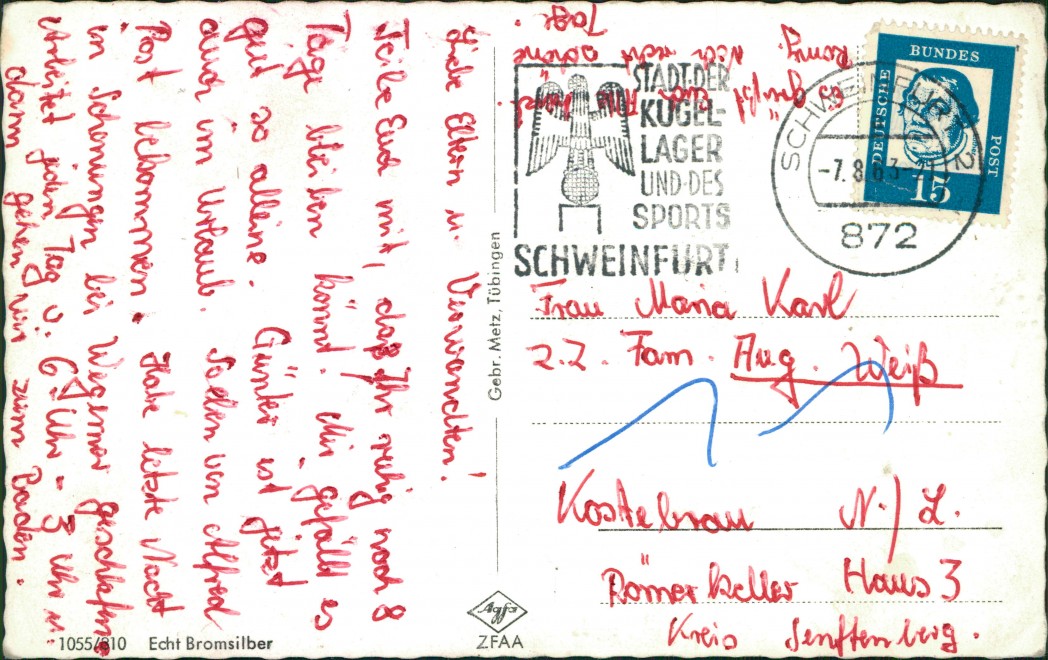 Liebe Eltern u. Verwandten!
Teile Euch mit, daß Ihr ruhig noch 8
Tage bleiben könnt. Mir gefällt es
gut so alleine. Günter ist jetzt
auch im Urlaub. Soeben von Alfred
Post bekommen. Habe letzte Nacht
in Schonungen bei Wegener geschlafen
Arbeitet jeden Tag v. 6 Uhr - 3 Uhr u.
dann gehen wir zum Baden.
es grüßt
Romy. Noch recht schöne
Tage.
STADT·DER
KUGEL-
LAGER
UND·DES
SPORTS
SCHWEINFURT
SCHWEINFURT 2
-7.8.63-
872
DEUTSCHE
BUNDES
POST
15
Frau Maria Karl
z.Z. Fam. Aug. Weiß
Kostebrau N./L.
Römerkeller Haus 3
Kreis Senftenberg.
Gebr. Metz, Tübingen
1055/810 Echt Bromsilber
Agfa
ZFAA